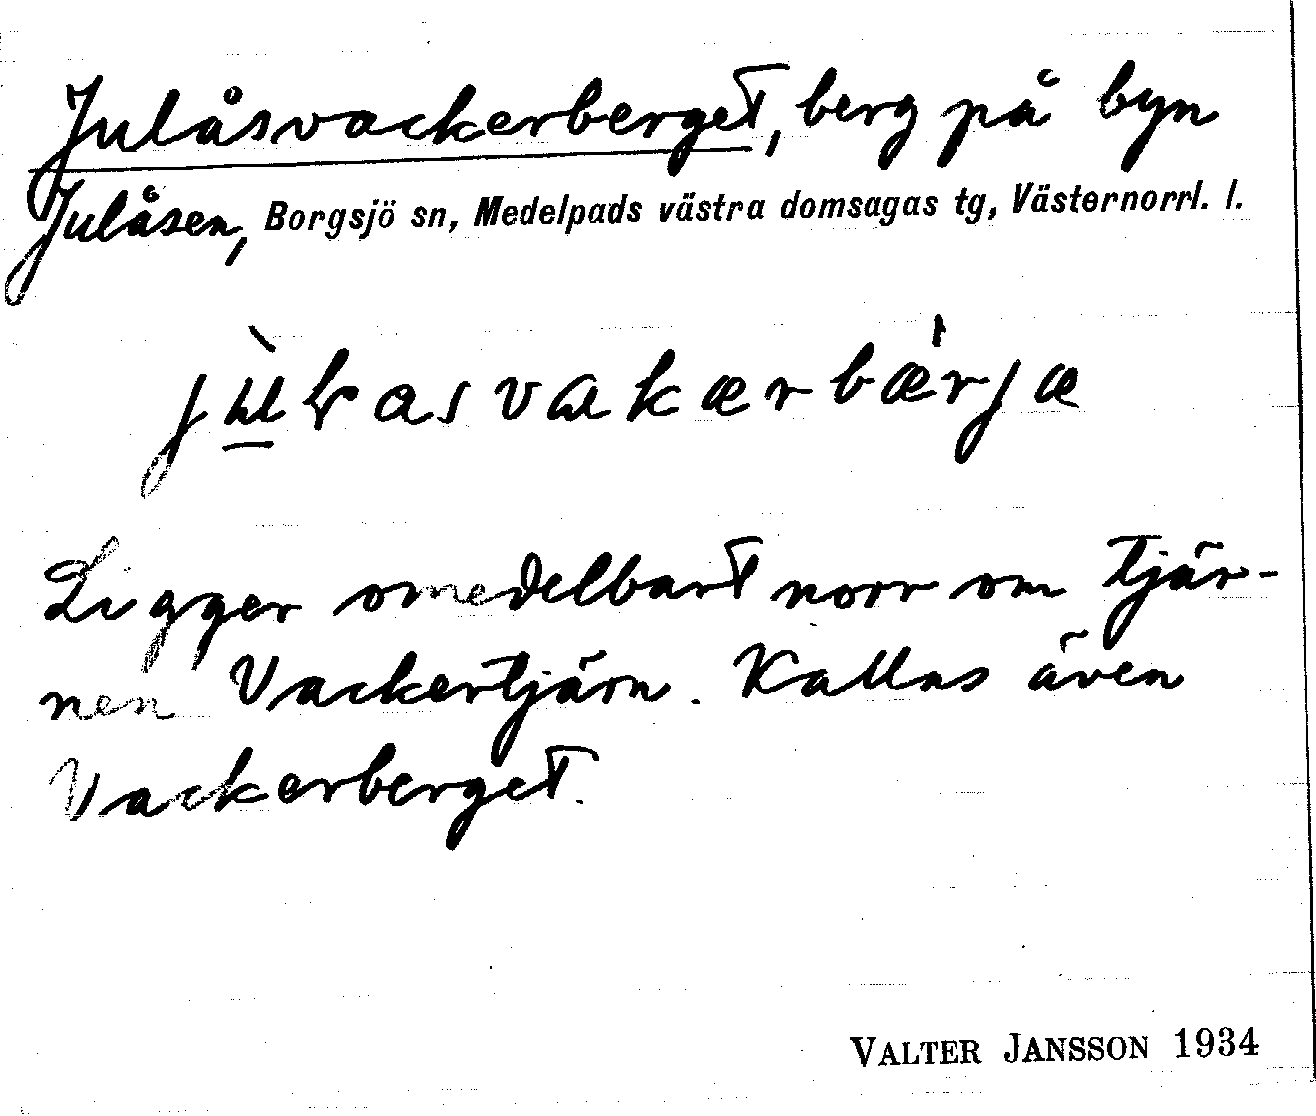 Julåsvackerberget, berg på byn
Julåsen, Borgsjö sn, Medelpads västra domsagas tg, Västernorrl. l.
Ligger omedelbart norr om tjär-
nen Vackertjärn. Kallas även
Vackerberget.
VALTER JANSSON 1934